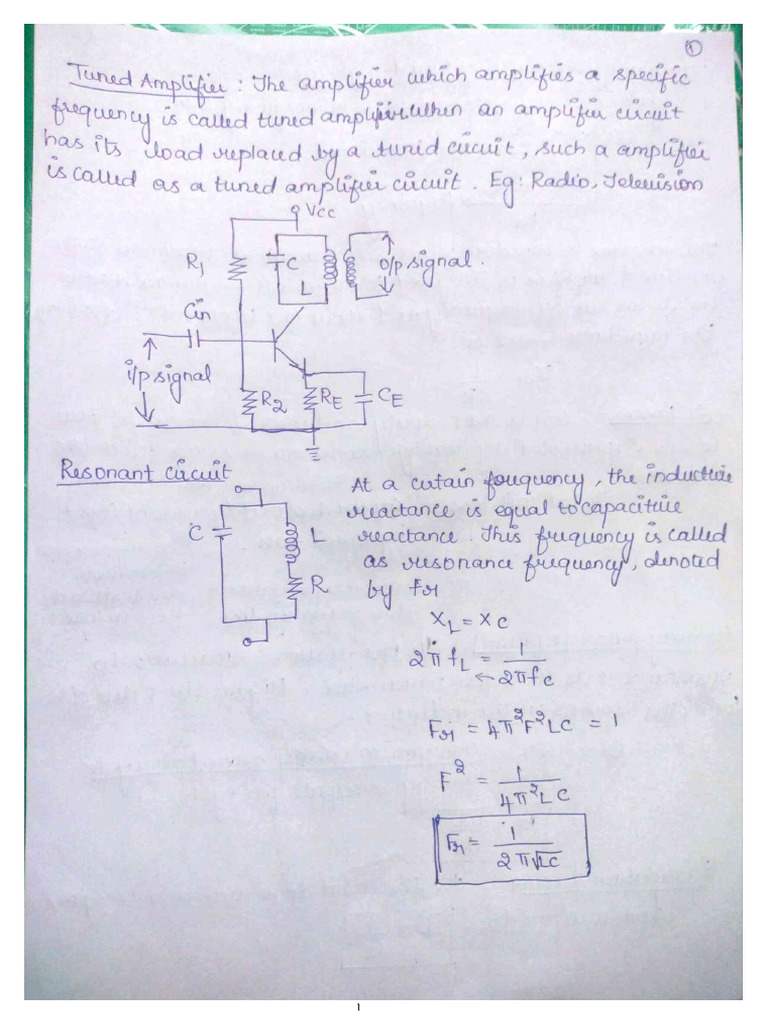 ①
Tuned Amplifier : The amplifier which amplifies a specific
frequency is called tuned amplifier. When an amplifier circuit
has its load replaced by a tuned circuit, such a amplifier
is called as a tuned amplifier circuit. Eg: Radio, Television
Vcc
R1
C
L
o/p signal.
Cin
i/p signal
R2
RE
CE
Resonant circuit
C
L
R
At a certain frequency, the inductive
reactance is equal to capacitive
reactance. This frequency is called
as resonance frequency, denoted
by Fr
XL = XC
2πfL = 1/2πfC
Fr = 4π²F²LC =
F² = 1/4π²LC
Fr = 1/2π√LC
1